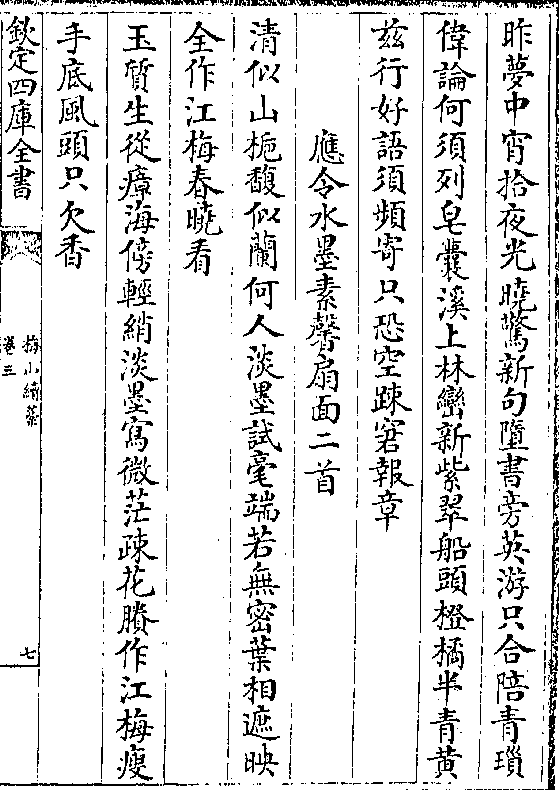 昨夢中宵拾夜光曉驚新句墮書旁英游只合陪青瑣
偉論何須列皂囊溪上林巒新紫翠船頭橙橘半青黄
兹行好語須頻寄只恐空疎窘報章
應令水墨素馨扇面二首
清似山梔馥似蘭何人淡墨試毫端若無密葉相遮映
全作江梅春曉看
玉質生從瘴海傍輕綃淡墨寫微茫疎花賸作江梅瘦
手底風頭只欠香
欽定四庫全書
梅山續藁
卷三
七